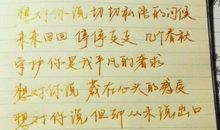 想对你说 切切私语的问候
来来回回 停停走走 几个春秋
守护你是我平凡的奢求
想对你说 藏在心头的感度
想对你说 但却从未说出口